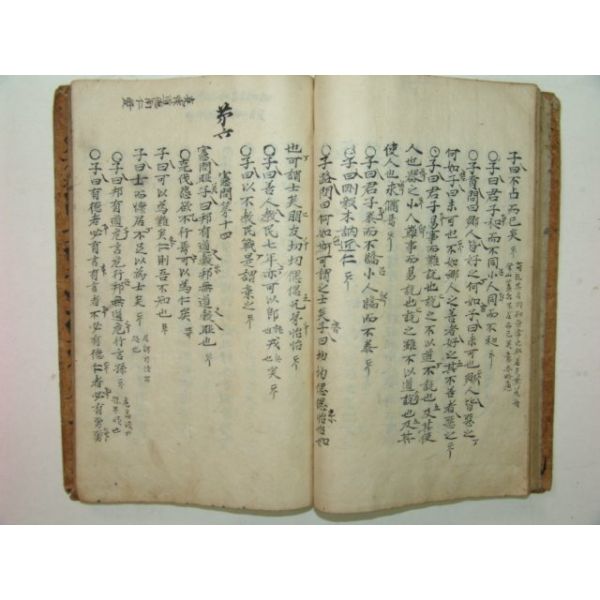 子曰不占而已矣
○子曰君子和而不同小人同而不和
○子貢問曰鄕人皆好之何如子曰未可也鄕人皆惡之
何如子曰未可也不如鄕人之善者好之其不善者惡之
○子曰君子易事而難說也說之不以道不說也及其使
人也器之小人難事而易說也說之雖不以道說也及其
使人也求備焉
○子曰君子泰而不驕小人驕而不泰
○子曰剛毅木訥近仁
○子路問曰何如斯可謂之士矣子曰切切偲偲怡怡如
也可謂士矣朋友切切偲偲兄弟怡怡
○子曰善人敎民七年亦可以卽戎矣
○子曰以不敎民戰是謂棄之
第六
憲問第十四
憲問恥子曰邦有道穀邦無道穀恥也
○克伐怨欲不行焉可以爲仁矣
子曰可以爲難矣仁則吾不知也
子曰士而懷居不足以爲士矣
○子曰邦有道危言危行邦無道危行言孫
○子曰有德者必有言有言者不必有德仁者必有勇勇